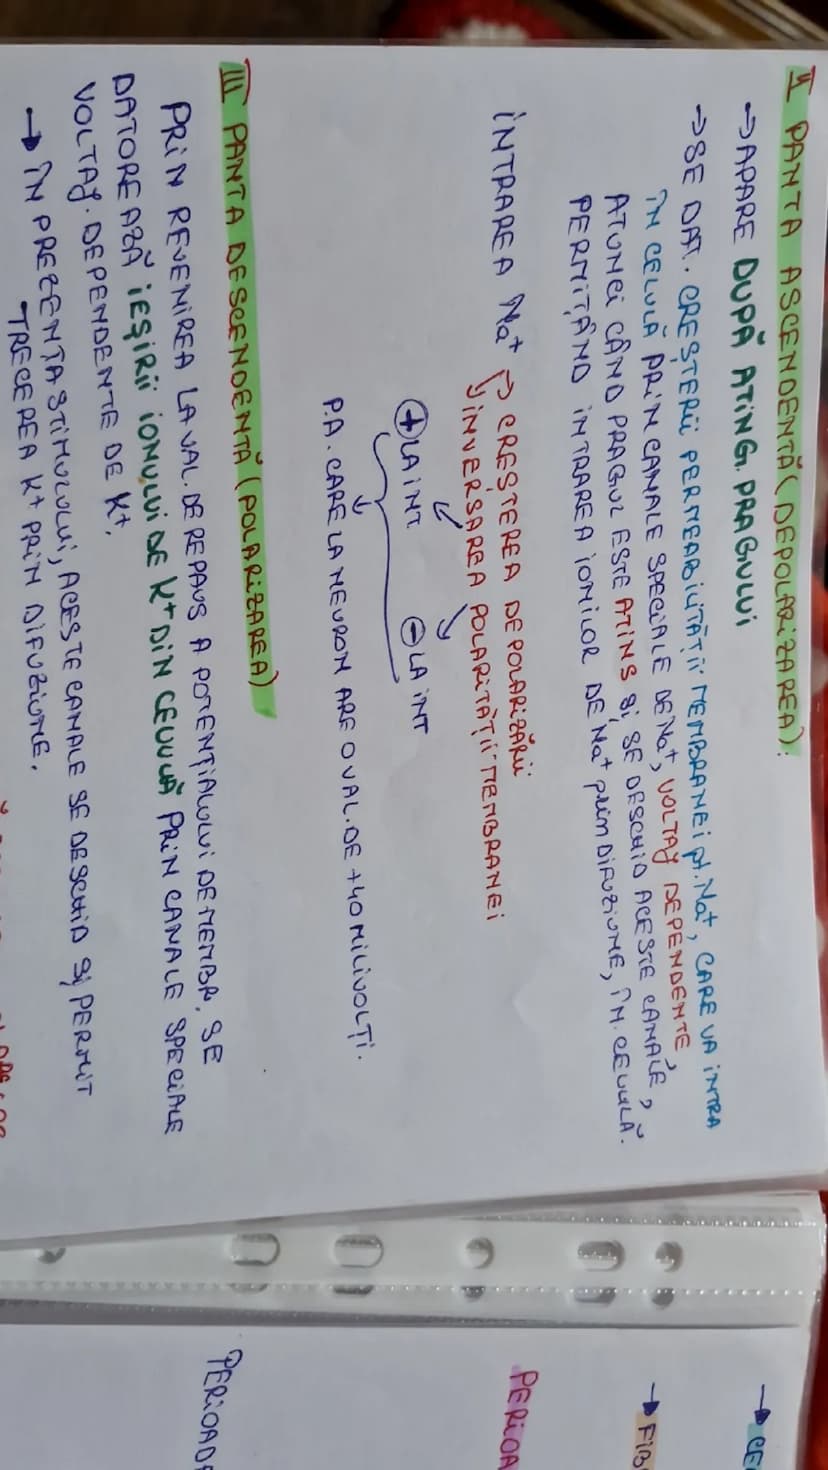 II PANTA ASCENDENTĂ (DEPOLARIZAREA):
→ APARE DUPĂ ATING. PRAGULUI
→ SE DAT. CREȘTERII PERMEABILITĂȚII MEMBRANEI pt. Na⁺, CARE VA INTRA
ÎN CELULĂ PRIN CANALE SPECIALE DE Na⁺, VOLTAJ DEPENDENTE,
ATUNCI CÂND PRAGUL ESTE ATINS ȘI SE DESCHID ACESTE CANALE,
PERMIȚÂND INTRAREA IONILOR DE Na⁺ prin DIFUZIUNE, ÎN CELULĂ.
INTRAREA Na⁺ → CREȘTEREA DEPOLARIZĂRII
INVERSAREA POLARITĂȚII MEMBRANEI
⊕ LA INT. ⊖ LA INT
P.A. CARE LA NEURON ARE O VAL. DE +40 MILIVOLȚI.
III PANTA DESCENDENTĂ (POLARIZAREA)
PRIN REVENIREA LA VAL. DE REPAUS A POTENȚIALULUI DE MEMBR. SE
DATOREAZĂ IEȘIRII IONULUI DE K⁺ DIN CELULĂ PRIN CANALE SPECIALE
VOLTAJ. DEPENDENTE DE K⁺.
→ ÎN PREZENȚA STIMULULUI, ACESTE CANALE SE DESCHID ȘI PERMIT
TRECEREA K⁺ PRIN DIFUZIUNE.
→ CE
→ FIB
PERIOA
PERIOADA